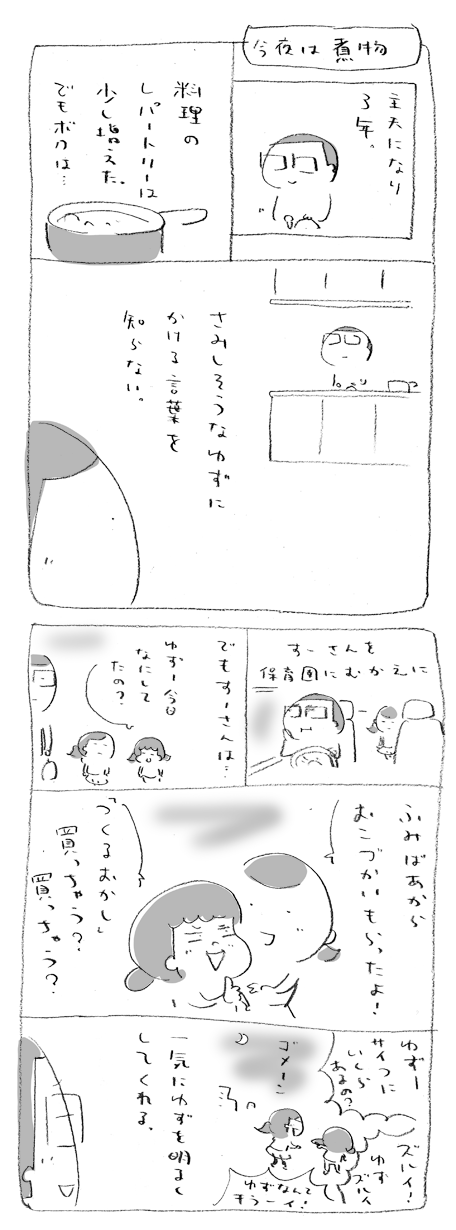 今夜は煮物
主夫になり
3年。
料理の
レパートリーは
少し増えた。
でもボクは…
さみしそうなゆずに
かける言葉を
知らない。
すーさんを
保育園にむかえに
でもすーさんは…
ゆずー今日
なにして
たの?
ふみばあから
おこづかいもらったよ!
「つくるおかし」
買っちゃう?
買っちゃう?
ゆずー
サイフに
いくら
あるの?
ズルイ!
ゆず
ズルイ
ゆずなんて
もうーイ!
ゴメーン
一気にゆずを明るく
してくれる。